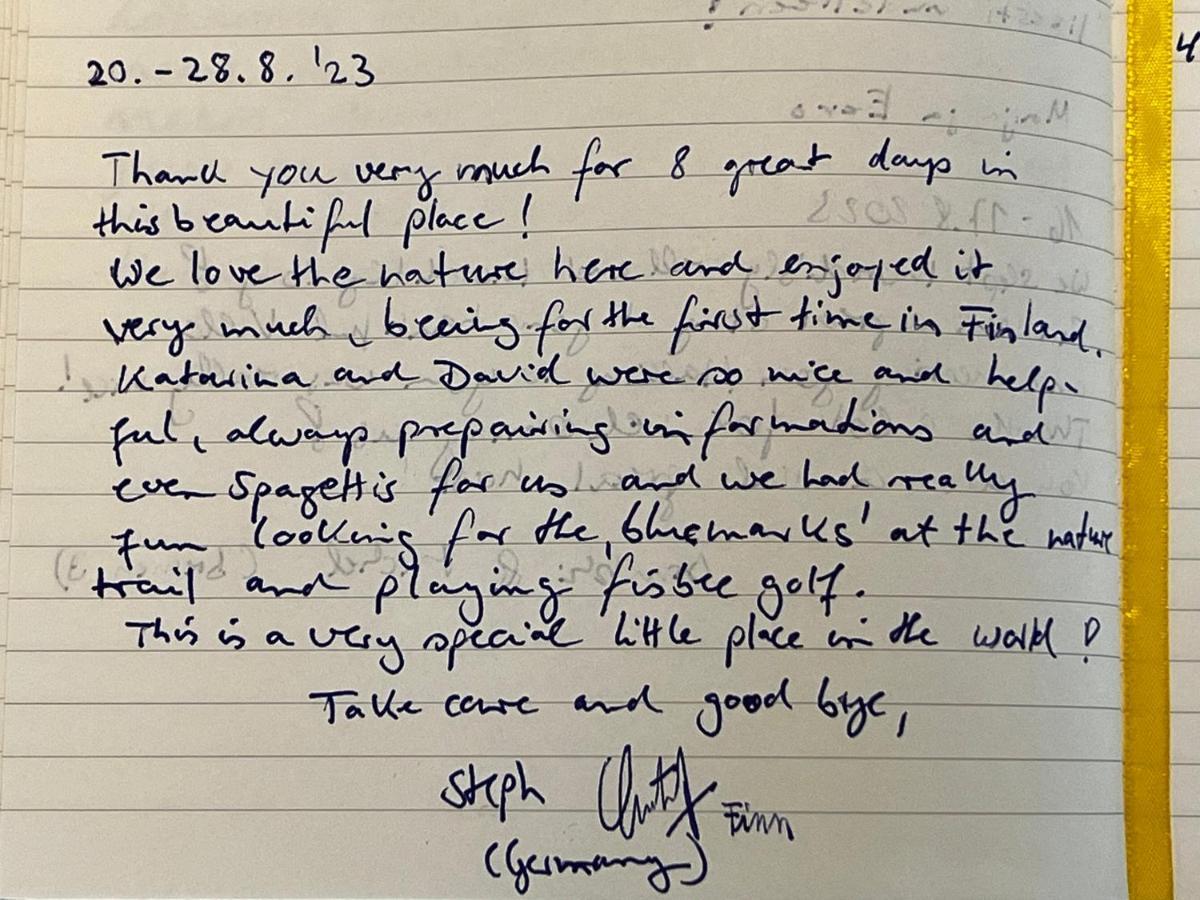 20. - 28. 8. '23
Thank you very much for 8 great days in
this beautiful place!
We love the nature here and enjoyed it
very much, beeing for the first time in Finland.
Katarina and David were so nice and help-
ful, always prepairing informations and
even Spagettis for us and we had really
fun looking for the ,bluemarks' at the nature
trail and playing fisbee golf.
This is a very special little place in the world!
Take care and good bye,
Steph Finn
(Germany)